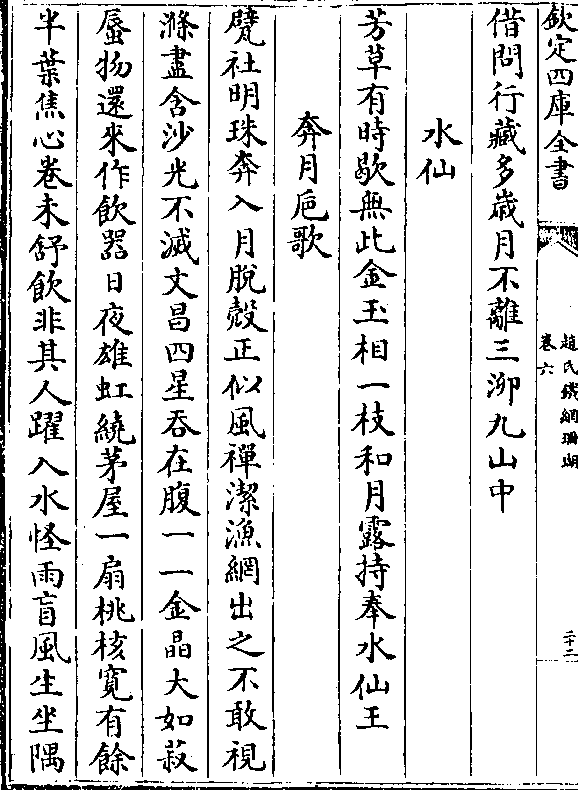 欽定四庫全書
趙氏鐵網珊瑚
卷六
二十二
借問行藏多歲月不離三泖九山中
水仙
芳草有時歇無此金玉相一枝和月露持奉水仙王
奔月巵歌
甓社明珠奔入月脫殼正似風禪潔漁網出之不敢視
滌盡含沙光不滅文昌四星吞在腹一一金晶大如菽
蜃物還來作飲器日夜雄虹繞茅屋一扇桃核寬有餘
半葉焦心卷未舒飲非其人躍入水怪雨盲風生坐隅